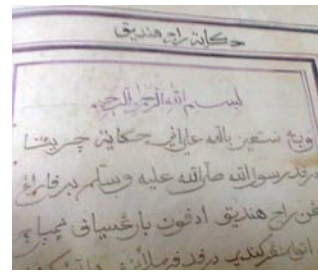 حكاية راج هنديق
بسم الله الرحمن الرحيم
وبه نستعين بالله على اني حكاية چريتا
درفد رسول الله صلى الله عليه وسلم برفارڠ
دڠن راج هنديق ادفون بارڠسياف ممباچ
درفد